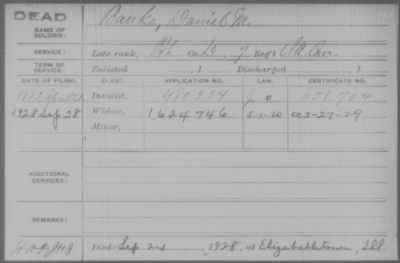 DEAD
NAME OF SOLDIER:
Banks, Daniel M.
SERVICE:
Late rank, Pvt Co. D, 7 Reg't Ill. Cav.
TERM OF SERVICE:
Enlisted , 1 Discharged , 1
DATE OF FILING. CLASS. APPLICATION NO. LAW. CERTIFICATE NO.
Invalid, 480,234
1928 Sep 28 Widow, 1,624,746 5-1-20 a3-27-29
Minor,
ADDITIONAL SERVICES:
REMARKS:
Died Sep 24, 1928, at Elizabethtown, Ill